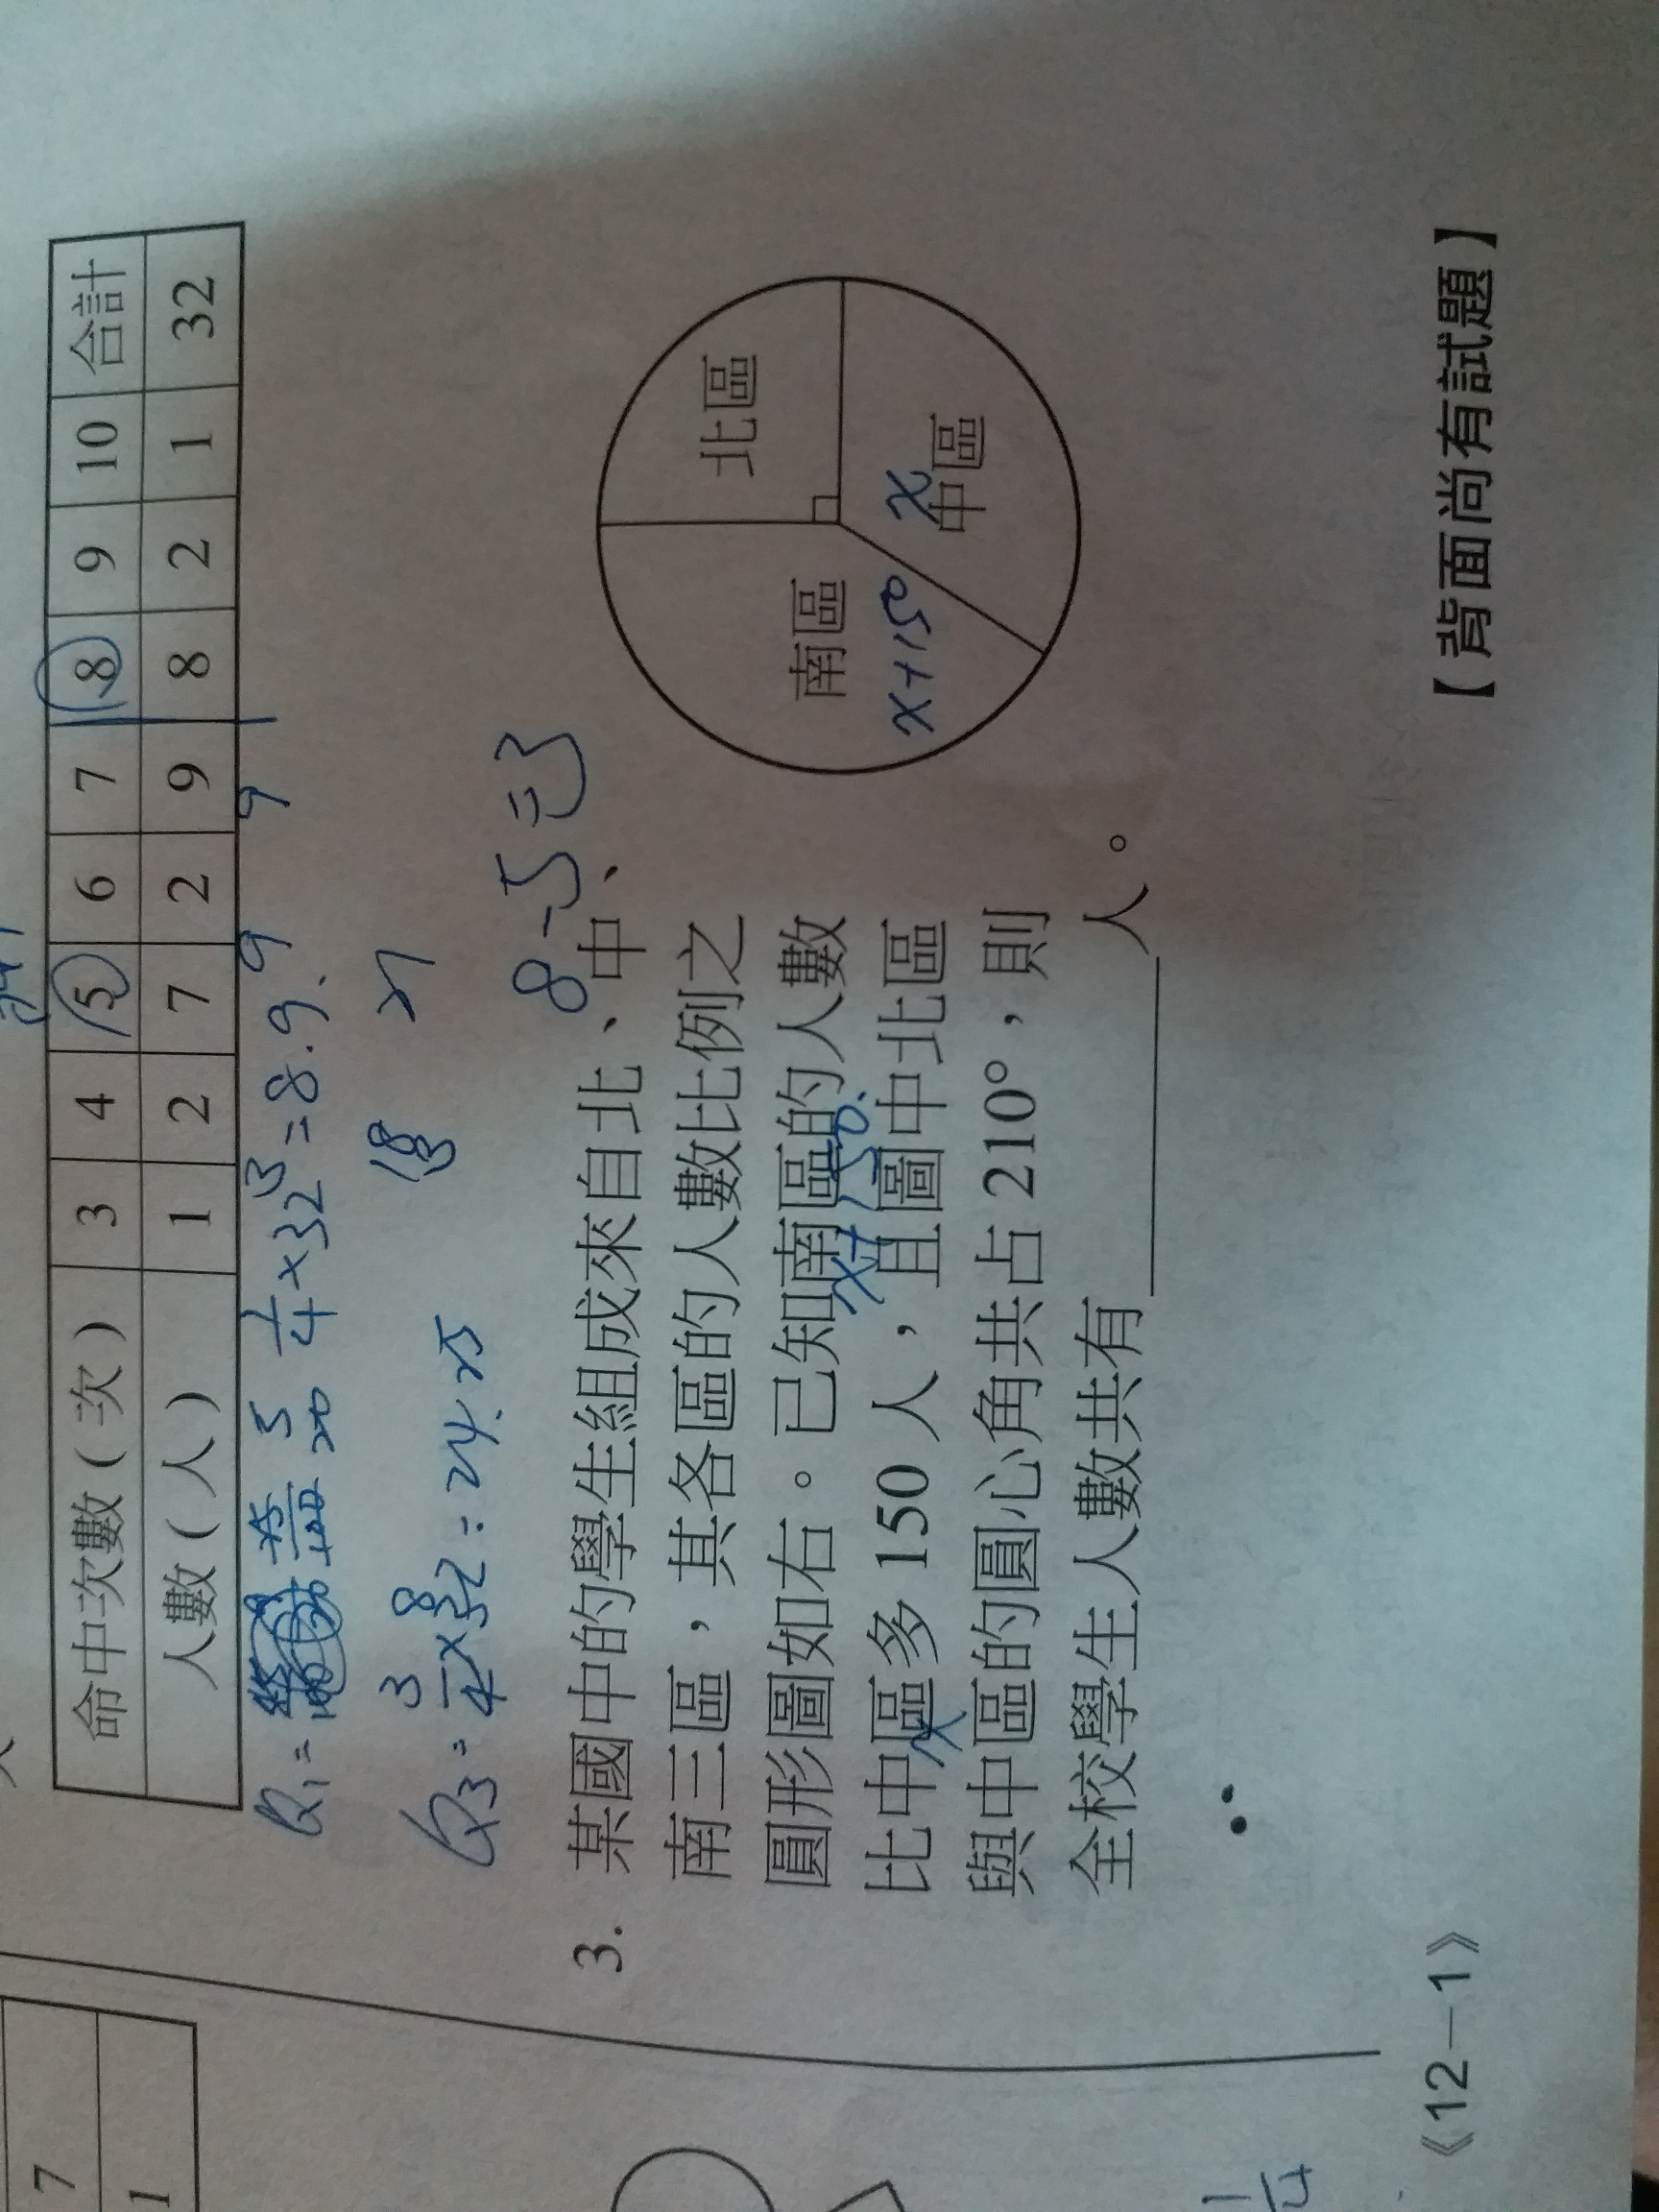 命中次數(次) 3 4 5 6 7 8 9 10 合計
人數(人) 1 2 7 2 9 8 2 1 32
9 9
Q₁= 25/100 5/20 1/4×32=8.9.
Q₃= 3/4×32=24.25
8-5=3
3. 某國中的學生組成來自北、中、
南三區，其各區的人數比例之
圓形圖如右。已知南區的人數
x+150.
比中區多 150 人，且圖中北區
x
與中區的圓心角共占 210°，則
全校學生人數共有＿＿＿＿人。
北區
南區
x+150
x
中區
7
1
1/4
《12－1》
【背面尚有試題】